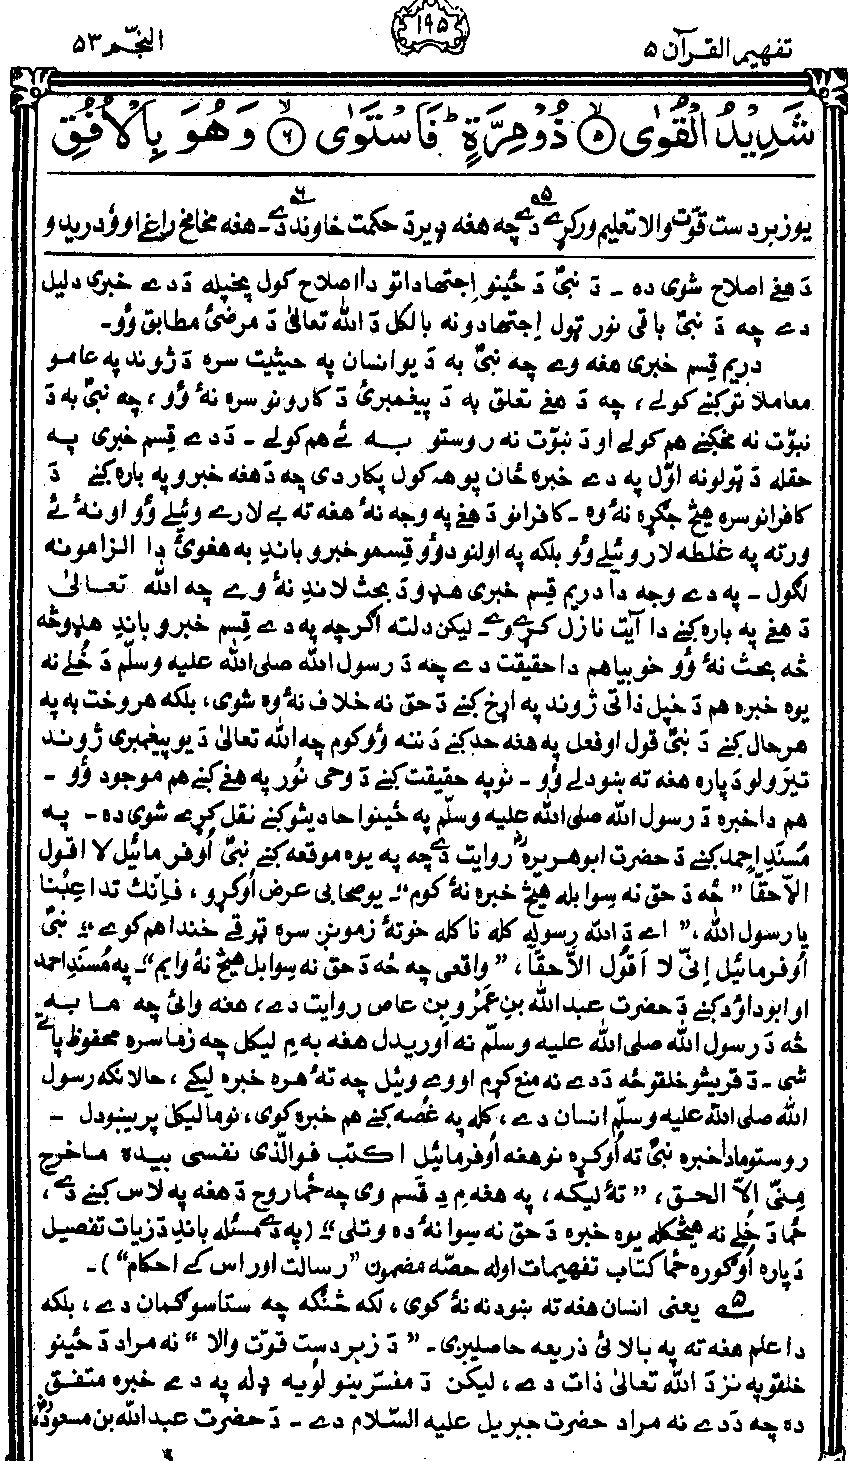 تفهيم القرآن ۵
۱۹۵
النجم ۵۳
شَدِيْدُ الْقُوٰى ۵ ذُوْ مِرَّةٍ ط فَاسْتَوٰى ۶ وَهُوَ بِالْاُفُقِ
يو زبردست قوّت والا تعليم ورکړے دے چه هغه ډير د حکمت خاوند دے۔ هغه مخامخ راغے او ودريدو
د هغے اصلاح شوی ده ۔ د نبیؐ د ځينو اجتهاداتو دا اصلاح کول پخپله د دے خبرے دليل
دے چه د نبیؐ باقی نور ټول اجتهادونه بالکل د الله تعالیٰ د مرضئ مطابق وُو۔
دريم قسم خبرے هغه وے چه نبیؐ به د يو انسان په حيثيت سره د ژوند په عامو
معاملاتو کښے کولے ، چه د هغے تعلق په د پيغمبرئ د کارونو سره نهٔ وُو ، چه نبیؐ به د
نبوّت نه مخکښے هم کولے او د نبوّت نه روستو به ئے هم کولے ۔ د دے قسم خبرے په
حقله د ټولو نه اوّل په دے خبره ځان پوهه کول پکار دی چه د هغه خبرو په باره کښے د
کافرانو سره هيڅ جګړه نهٔ وه ۔ کافرانو د هغے په وجه نهٔ هغه ته بے لارے وئيلے وُو او نهٔ ئے
ورته په غلطه لار وئيلے وُو بلکه په اولنو دوؤ قسمو خبرو باندِ به هغوئ دا الزامونه
لګول ۔ په دے وجه دا دريم قسم خبرے هډو د بحث لاندِ نهٔ وے چه الله تعالیٰ
د هغے په باره کښے دا آيت نازل کړے وے۔ ليکن دلته اګرچه په دے قسم خبرو باندِ هډو څه
څه بحث نهٔ وُو خو بيا هم دا حقيقت دے چه د رسول الله صلی الله عليه وسلّم د خُلے نه
يوه خبره هم د خپل ذاتی ژوند په اړخ کښے د حق نه خلاف نهٔ وه شوی ، بلکه هر وخت به په
هر حال کښے د نبیؐ قول او فعل په هغه حد کښے دننه وُو کوم چه الله تعالیٰ د يو پيغمبری ژوند
تيرولو د پاره هغه ته ښودلے وُو ۔ نو په حقيقت کښے د وحی نُور په هغے کښے هم موجود وُو ۔
هم دا خبره د رسول الله صلی الله عليه وسلّم په ځينو احاديثو کښے نقل کړے شوی ده ۔ په
مُسنَدِ احمد کښے د حضرت ابو هريرهؓ روايت دے چه په يوه موقعه کښے نبیؐ اُوفرمائيل لا اقول
الّا حقّا ” زه د حق نه سوا بله هيڅ خبره نهٔ کوم “۔ يو صحابی عرض اُوکړو ، فانّک تداعِبُنا
يا رسول الله ، ” اے د الله رسوله کله نا کله خو تهٔ زمونږ سره ټوقے خندا هم کوے “ نبیؐ
اُوفرمائيل اِنّی لا اَقُولُ الّا حقّا ، ” واقعی چه زه د حق نه سوا بل هيڅ نهٔ وايم “۔ په مُسنَدِ احمد
او ابو داؤد کښے د حضرت عبد الله بن عَمْرو بن عاص روايت دے ، هغه وائی چه ما به
څه د رسول الله صلی الله عليه وسلّم نه اوريدل هغه به مِ ليکل چه زما سره محفوظ پاتے
شی ۔ د قريشو خلقو زه د دے نه منع کړم او وے وئيل چه تهٔ هره خبره ليکے ، حالانکه رسول
الله صلی الله عليه وسلّم انسان دے ، کله په غُصه کښے هم خبره کوی ، نو ما ليکل پريښودل ۔
روستو ما دا خبره نبیؐ ته اُوکړه نو هغه اُوفرمائيل اکتب فوالّذی نفسی بيده ما خرج
مِنّی الّا الحق ، ” تهٔ ليکه ، په هغه مِ دِ قسم وی چه ځما روح د هغه په لاس کښے دے ،
ځما د خُلے نه هيڅکله يوه خبره د حق نه سوا نهٔ ده وتلی “ ( په دے مسئله باندِ د زيات تفصيل
د پاره اُوګوره ځما کتاب تفهيمات اوله حصّه مضمون ” رسالت اور اس کے احکام “ ) ۔
۵ يعنی انسان هغه ته ښودنه نهٔ کوی ، لکه څنګه چه ستاسو ګمان دے ، بلکه
دا علم هغه ته په بالائی ذريعه حاصليږی ۔ ” د زبردست قوّت والا “ نه مراد د ځينو
خلقو په نزد الله تعالیٰ ذات دے ، ليکن د مفسّرينو لويه ډله په دے خبره متفق
ده چه د دے نه مراد حضرت جبريل عليه السّلام دے ۔ د حضرت عبد الله بن مسعودؓ،